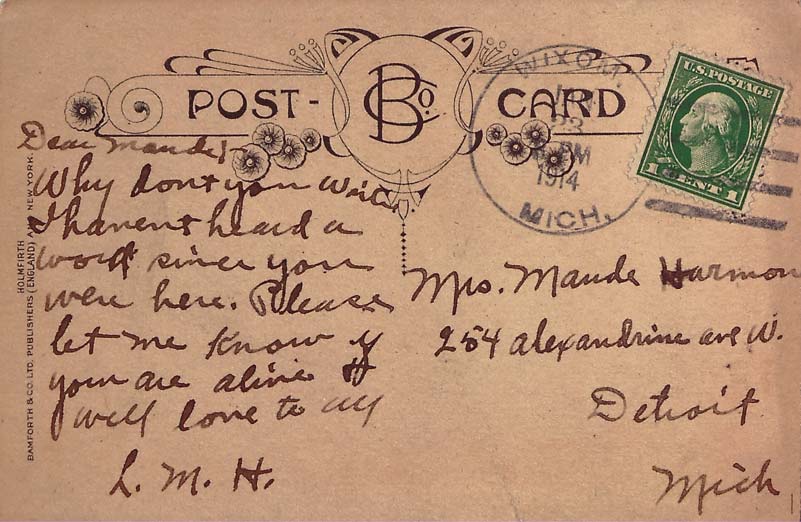 POST-CARD
B Co.
WIXOM,
23
PM
1914
MICH.
U.S. POSTAGE
1 CENT 1
HOLMFIRTH
BAMFORTH & CO. LTD. PUBLISHERS (ENGLAND) AND NEW YORK.
Dear Maude,
Why dont you write
I havent heard a
word since you
were here. Please
let me know if
your are alive &
well love to all
L. M. H.
Mrs. Maude Harmon
254 alexandrine ave W.
Detroit
Mich